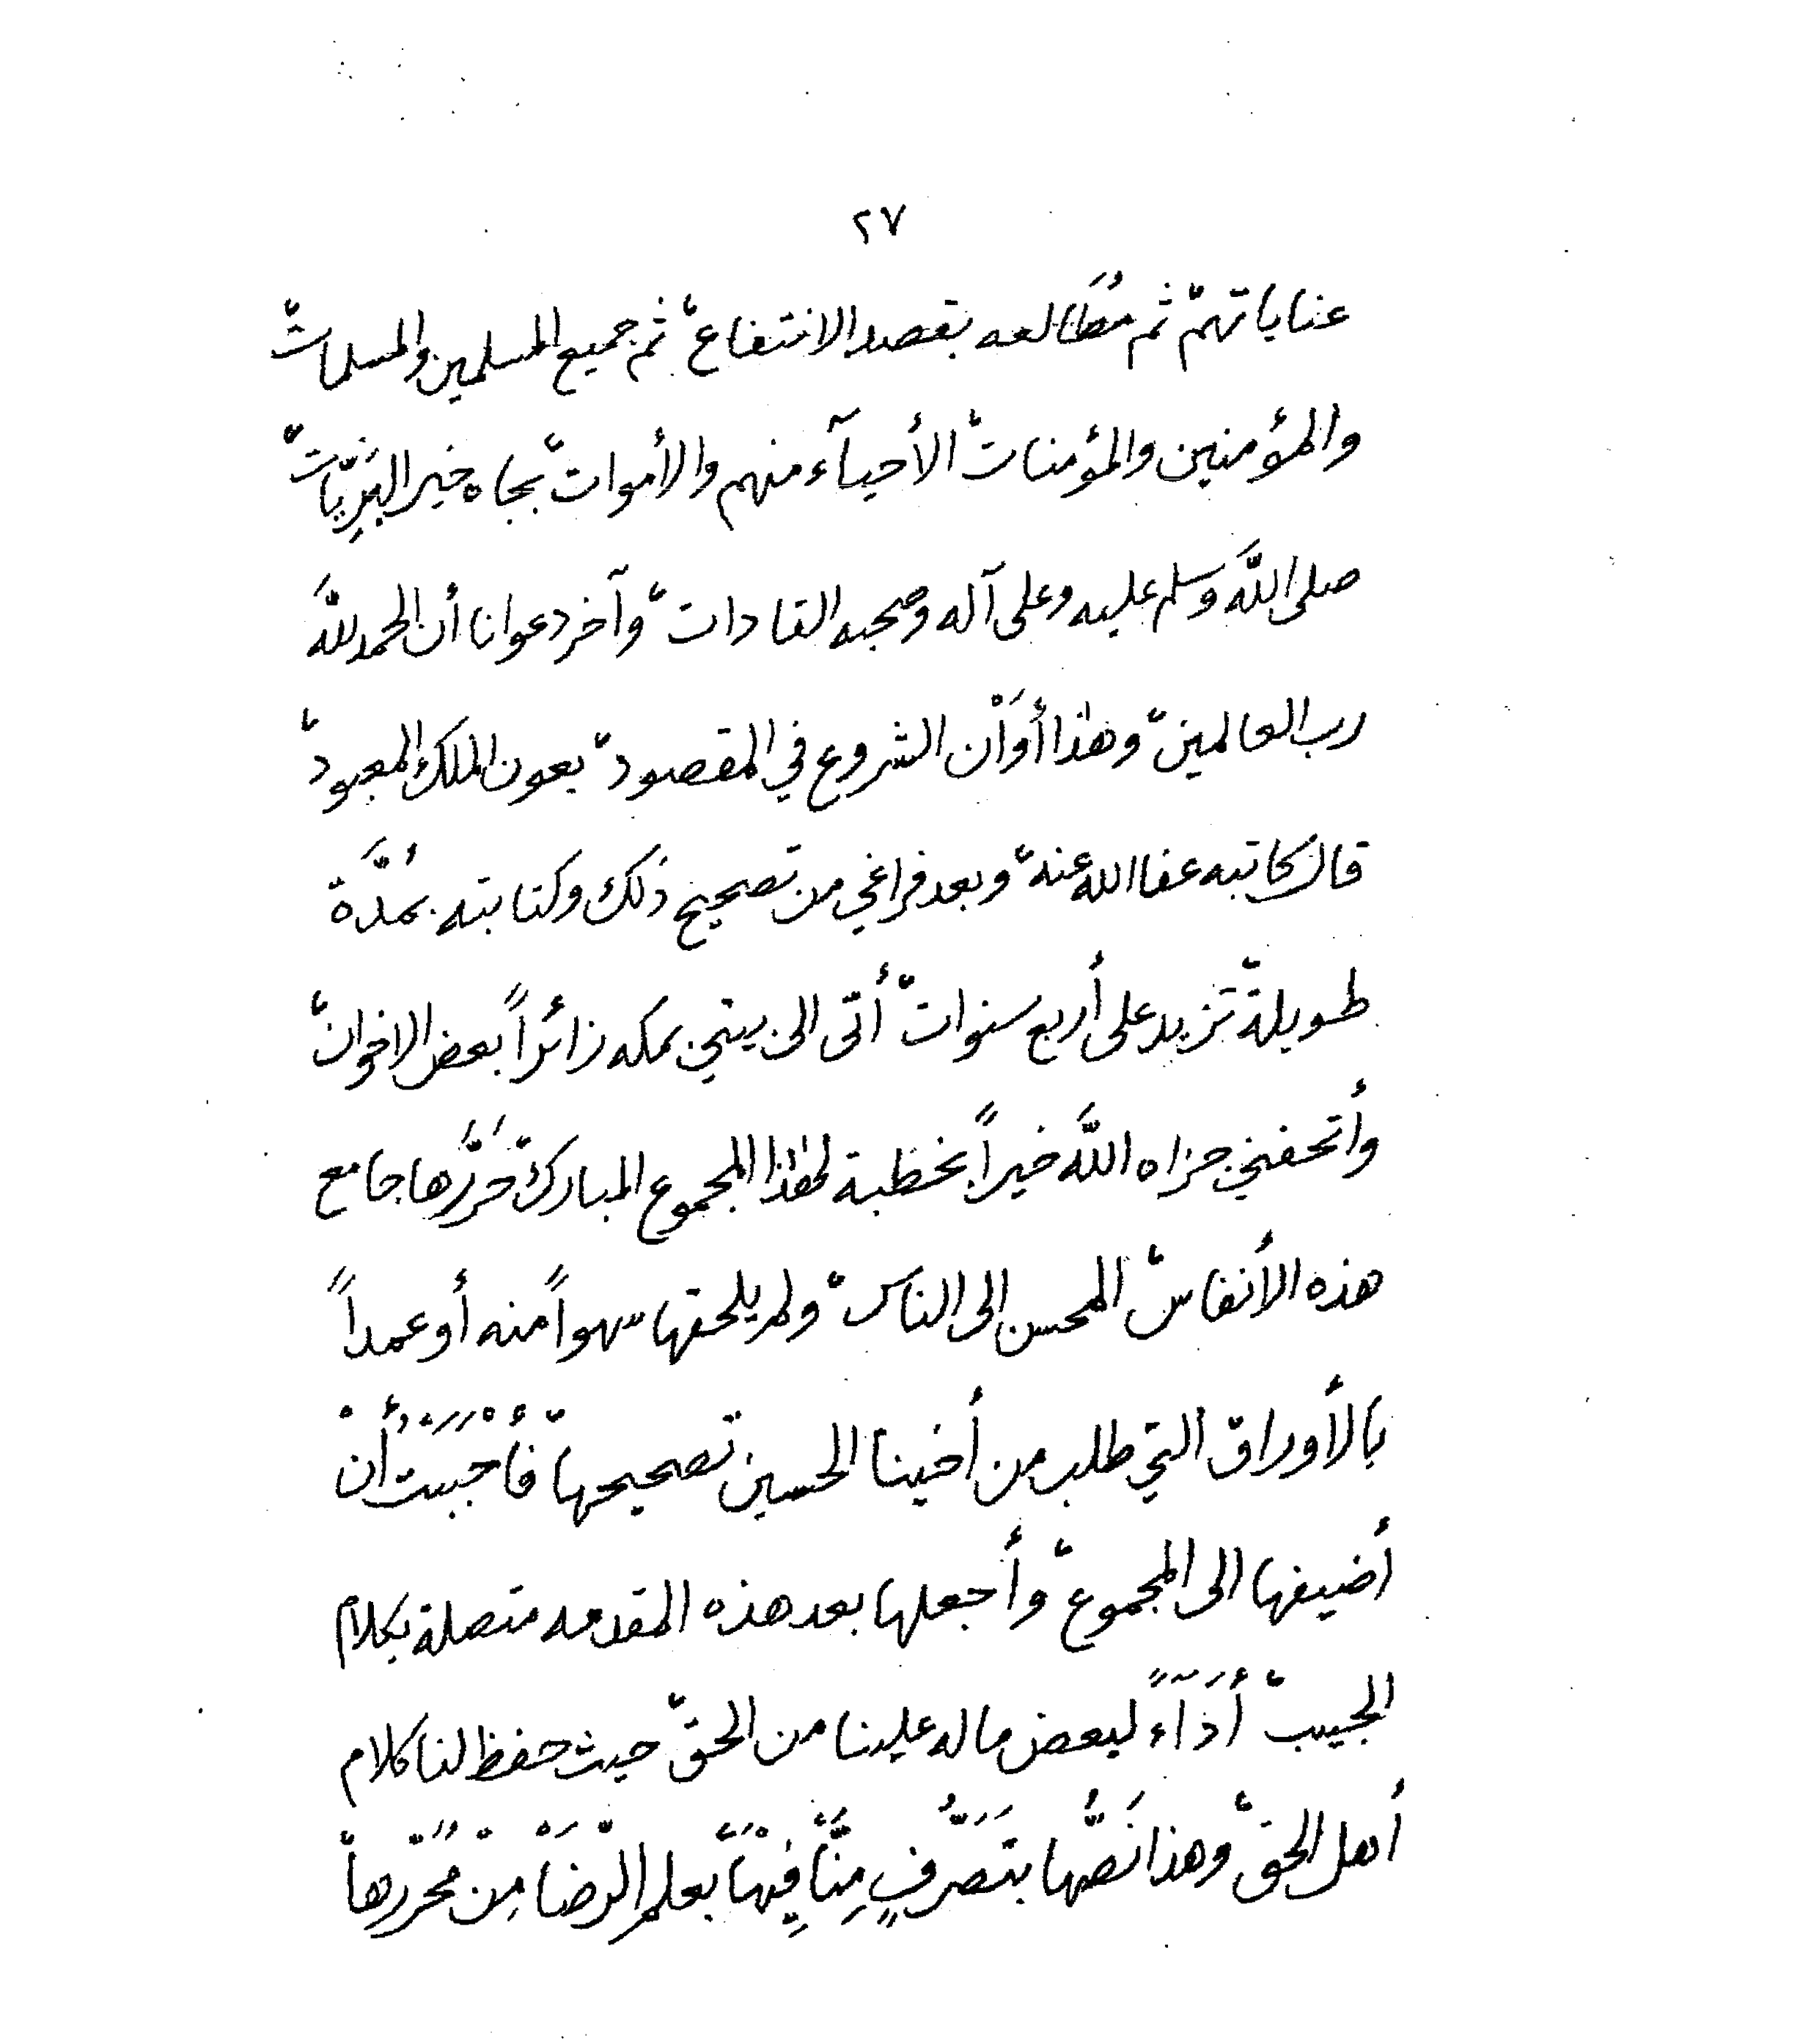 ٢٧
عناياتهم ثم مُطَالعه بقصد الانتفاع ثم جميع المسلمين والمسلمات
والمؤمنين والمؤمنات الأحيآء منهم والأموات بجاه خير البَرِيّات
صلى اللَّه وسلم عليه وعلى آله وصحبه القادات وآخر دعوانا أن الحمد للَّه
رب العالمين وهذا أوَاْن الشروع في المقصود بعون الملك المعبود
قال كاتبه عفا الله عنه وبعد فراغي من تصحيح ذلك وكتابته بمُدَّة
طويلة تزيد على أربع سنوات أتى الى بيتي بمكه زائراً بعض الاخوان
وأتحفني جزاه اللَّه خيراً بخطبة لهذا المجموع المبارك حَرَّرها جامع
هذه الأنفاس المحسن الى الناس ولم يلحقها سهواً منه أو عمداً
بالأوراق التي طلب من أخينا الحسين تصحيحها فأَحْبَبْتُ أنْ
أضيفها الى المجموع وأجعلها بعد هذه المقدمه متصلة بكلام
الحبيب أدَآءً لبعض ما له علينا من الحق حيث حفظ لنا كلام
أهل الحق وهذا نَصُّها بتَصَرُّفٍ مِنَّاْ فِيْهَاْ بعلم الرّضَاْ مِنْ مُحَرّرهاْ